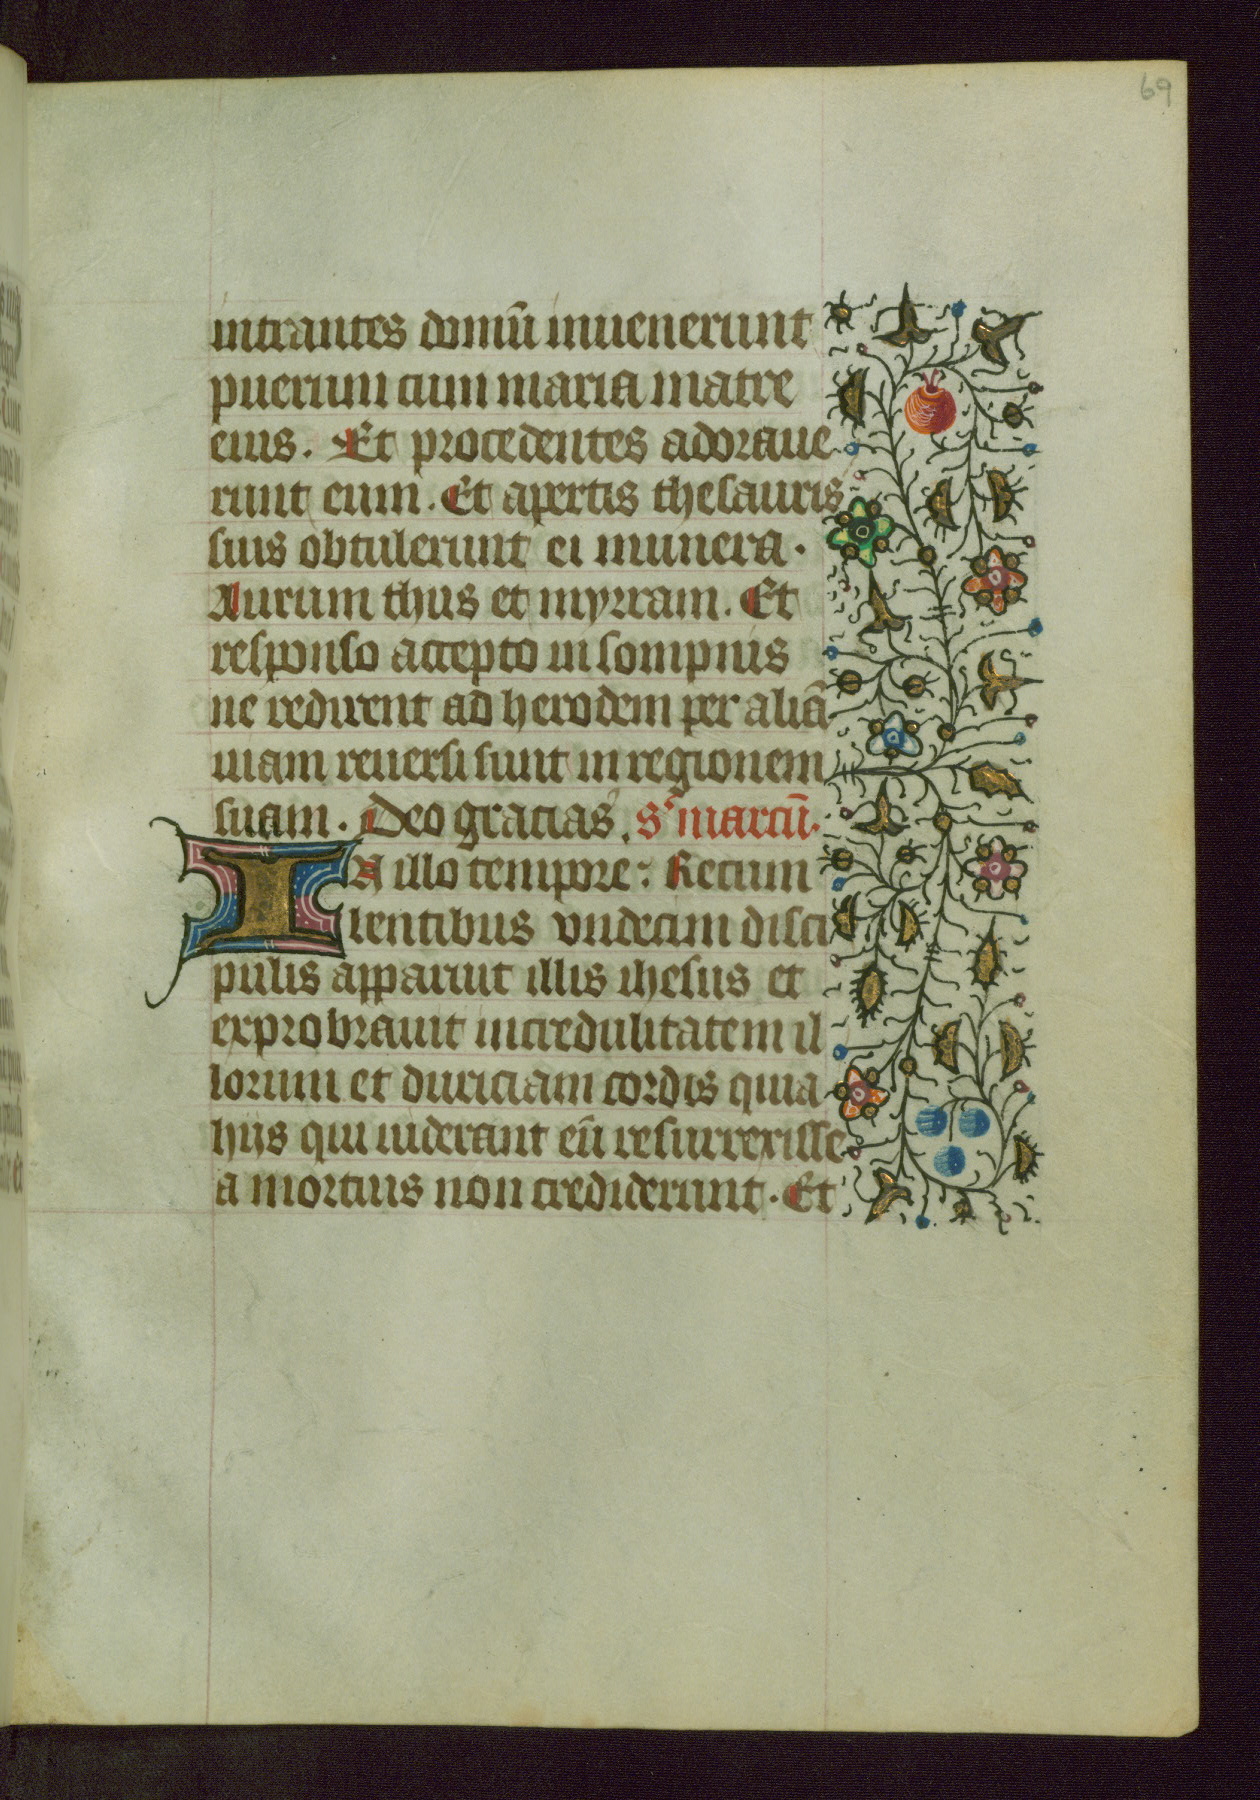 69
intrantes domū inuenerunt
puerum cum maria matre
eius. Et procedentes adoraue
runt eum. Et apertis thesauris
suis obtulerunt ei munera.
Aurum thus et myrram. Et
responso accepto in sompnis
ne redirent ad herodem per aliā
uiam reuersi sunt in regionem
suam. Deo gracias. Sͨ marcū.
IN illo tempore: Recum
bentibus vndecim disci
pulis apparuit illis ihesus et
exprobrauit incredulitatem il
lorum et duriciam cordis quia
hijs qui uiderant eū resurrexisse
a mortuis non crediderunt. Et